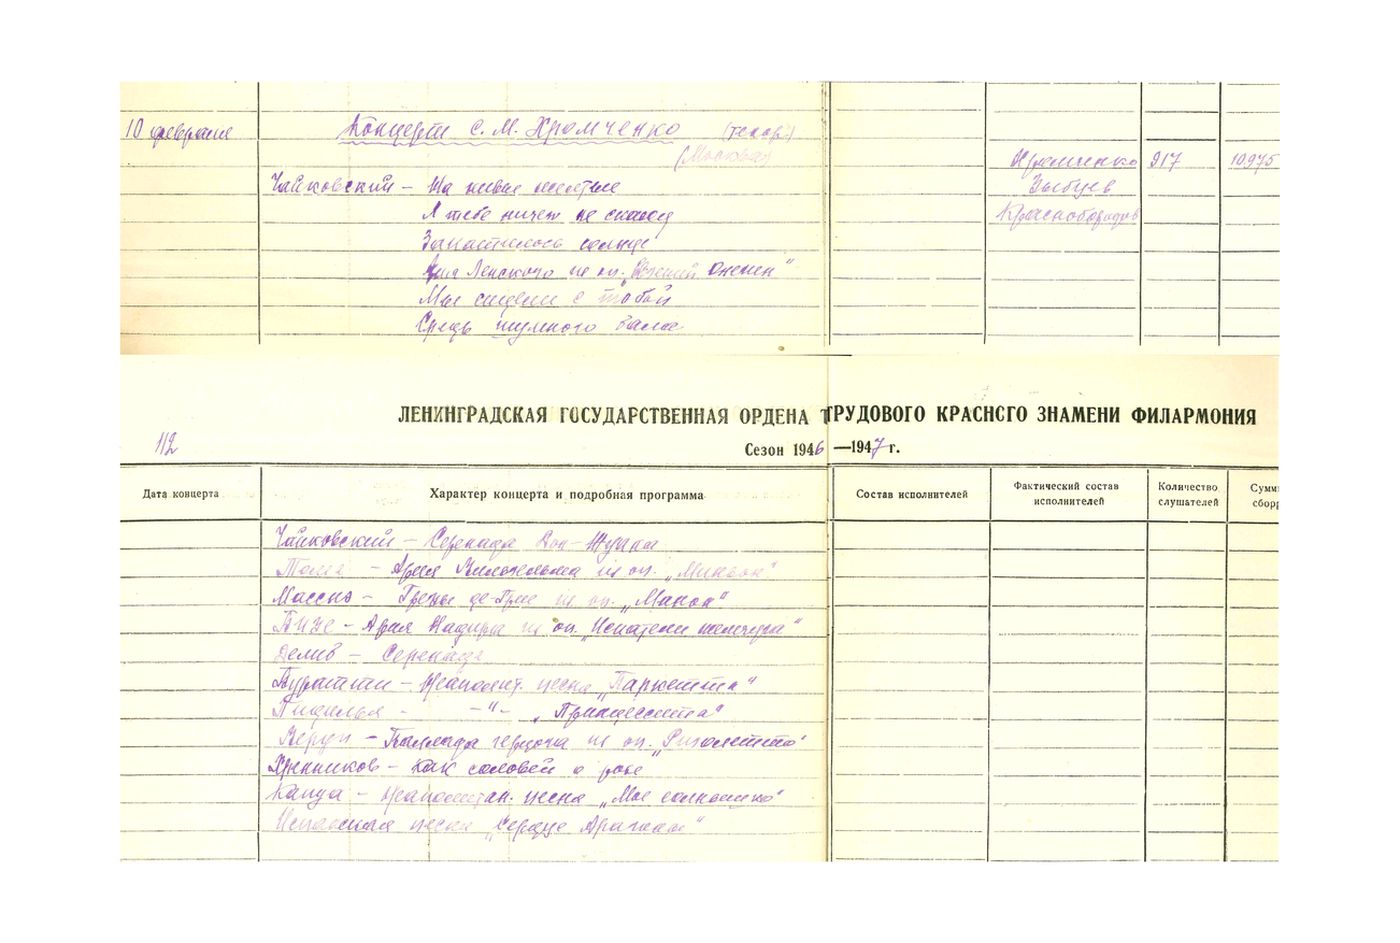 10 февраля Концерт С. М. Хромченко (тенор)
(Москва) Хромченко 917 10.975
Чайковский – На нивы желтые Зыбцев
Я тебе ничего не скажу Краснобородов
Закатилось солнце
Ария Ленского из оп. „Евгений Онегин"
Мы сидели с тобой
Средь шумного бала
ЛЕНИНГРАДСКАЯ ГОСУДАРСТВЕННАЯ ОРДЕНА ТРУДОВОГО КРАСНОГО ЗНАМЕНИ ФИЛАРМОНИЯ
112 Сезон 1946 —1947 г.
Дата концерта Характер концерта и подробная программа Состав исполнителей Фактический состав исполнителей Количество слушателей Сумм сборр
Чайковский – Серенада Дон-Жуана
Тома – Ария Вильгельма из оп. „Миньон"
Массне – Грезы де-Грие из оп. „Манон"
Бизе – Ария Надира из оп. „Искатели жемчуга"
Делиб – Серенада
– Неаполит. песня
– –"– „Принцессита"
Верди – Баллада герцога из оп. „Риголетто"
Хренников – Как соловей о розе
Капуа – Неаполитан. песня „Мое солнышко"
Испанская песня „Сердце Арагонии"